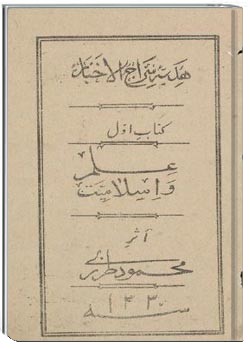 هدیه سراج الاخبار
کتاب اول
علم
و اسلامیت
اثر
محمود طرزی
۱۳۳۰
سنه